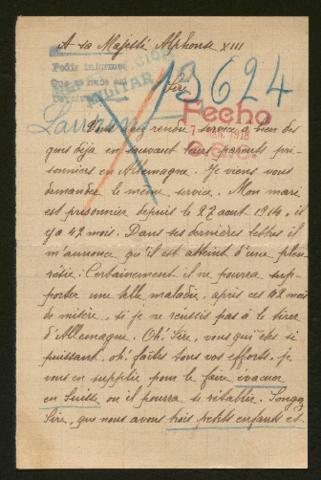 A sa Majesté Alphonse XIII
Pedir informes
MILITAR
13624
Sire
Fecho
7 1918
Vous avez rendu service à bien des
gens déjà en sauvant leurs parents pri-
sonniers en Allemagne. Je viens vous
demander le même service. Mon mari
est prisonnier depuis le 27 aout 1914, il
y a 42 mois. Dans ses dernières lettres il
m'annonce qu'il est atteint d'une pleu-
résie. Certainement il ne pourra sup-
porter une telle maladie, après ces 42 mois
de misère, si je ne réussis pas à le tirer
d'Allemagne. Oh! Sire, vous qui êtes si
puissant, oh! faîtes tous vos efforts, je
vous en supplie, pour le faire évacuer
en Suisse où il pourra se rétablir. Songez
Sire, que nous avons trois petits enfants et